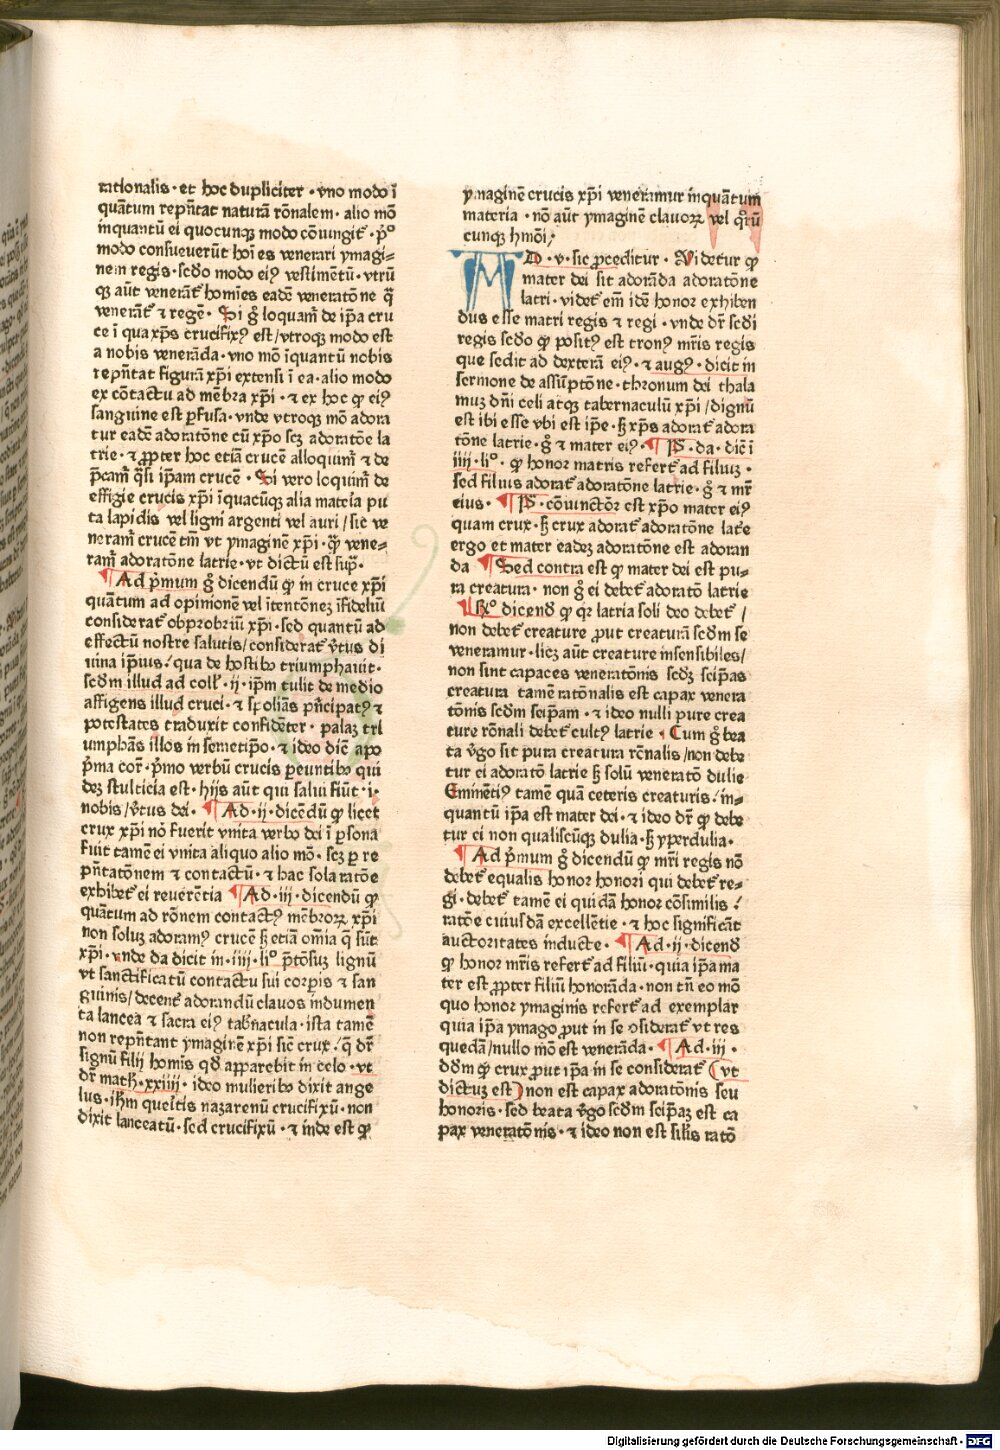 rationalis · et hoc dupliciter · vno modo ī
quātum rep̄ntat naturā rōnalem · alio mō
inquantū ei quocunqꝫ modo cōiungit᷑ · p̄º
modo consueuerūt hoīes venerari ymagi-
nem regis · scd̄o modo eiꝰ vestimētū · vtrū
qꝫ aūt venerāt᷑ homīes eadē veneratōne q̄
venerāt᷑ ⁊ regē · Si g̊ loquam᷑ de ip̄a cru
ce ī qua xp̄s crucifixꝰ est / vtroqꝫ modo est
a nobis venerāda · vno mō īquantū nobis
rep̄ntat figurā xp̄i extensi ī ea · alio modo
ex cōtactu ad mēbra xp̄i · ⁊ ex hoc ꝙ eiꝰ
sanguine est ꝑfusa · vnde vtroqꝫ mō adora
tur eadē adoratōne cū xp̄o scꝫ adoratōe la
trie · ⁊ ꝓpter hoc etiā crucē alloquim᷑ ⁊ de
p̄cam᷑ q̄si ip̄am crucē · Si vero loquim᷑ de
effigie crucis xp̄i īquacūqꝫ alia mateīa pu
ta lapidis vel ligni argenti vel auri / sic ve
neram᷑ crucē tm̄ vt ymaginē xp̄i · q̄ꝫ vene-
ram᷑ adoratōne latrie · vt dictū est sup̄ ·
Ad p̄mum g̊ dicendū ꝙ in cruce xp̄i
quātum ad opinionē vel itentōneꝫ īfideliū
considerat᷑ obprobriū xp̄i · sed quantū ad
effectū nostre salutis / considerat᷑ v̄tus di
uina ip̄ius / qua de hostibꝰ triumphauit ·
scd̄m illud ad coll᷑ · ij · ip̄m tulit de medio
affigens illud cruci · ⁊ spoliās p̄ncipatꝰ ⁊
potestates traduxit confidēter · palaꝫ tri
umphās illos in semetip̄o · ⁊ ideo dic̄ apo
p̄ma cor᷑ · p̄mo verbū crucis ꝑeuntibꝰ qui
deꝫ stulticia est · hijs aūt qui salui fiūt · i ·
nobis / v̄tus dei · Ad · ij · dicēdū ꝙ licet
crux xp̄i nō fuerit vnita verbo dei ī ꝑsona
fuit tamē ei vnita aliquo alio mō · scꝫ ꝑ re
p̄ntatōnem ⁊ contactū · ⁊ hac sola ratōe
exhibet᷑ ei reuerētia Ad · iii · dicendū ꝙ
quātum ad rōnem contactꝰ mēbroꝝ xp̄i
non soluꝫ adoramꝰ crucē sꝫ etiā om̄ia q̄ sūt
xp̄i · vnde da dicit in · iiii · liº p̄tōsuꝫ lignū
vt sanctificatū contactu sui corꝑis ⁊ san
guinis / decent᷑ adorandū clauos indumen
ta lancea ⁊ sacra eiꝰ tab̄nacula · ista tamē
non rep̄ntant ymaginē xp̄i sic̄ crux / q̄ dr̄
signū filij homīs qd̄ apparebit in celo · vt
dr̄ math᷑ · xxiiii · ideo mulieribꝰ dixit ange
lus · ih̄m queritis nazarenū crucifixū · non
dixit lanceatū · sed crucifixū · ⁊ inde est ꝙ
ymaginē crucis xp̄i veneramur inquātum
materia · nō aūt ymaginē clauoꝝ vel q̄rū
cunqꝫ hmōi /
AD · v · sic ꝓceditur · Uidetur ꝙ
mater dei sit adorāda adoratōne
latri · videt᷑ em̄ idē honor exhiben
dus esse matri regis ⁊ regi · vnde dr̄ scd̄i
regis scd̄o ꝙ positꝰ est tronꝰ mr̄is regis
que sedit ad dexterā eiꝰ · ⁊ augꝰ · dicit in
sermone de assūptōne · thronum dei thala
muꝫ dn̄i celi atqꝫ tabernaculū xp̄i / dignū
est ibi esse vbi est ip̄e · sꝫ xp̄s adorat᷑ adora
tōne latrie · g̊ ⁊ mater eiꝰ · P̄ · da · dic̄ ī
iiii · liº · ꝙ honor matris refert᷑ ad filiuꝫ ·
sed filius adorat᷑ adoratōne latrie · g̊ ⁊ mr̄
eius · P̄ · cōiunctōꝛ est xp̄o mater eiꝰ
quam crux · sꝫ crux adorat᷑ adoratōne lat᷑e
ergo et mater eadeꝫ adoratōne est adoran
da Sed contra est ꝙ mater dei est pu-
ra creatura · non g̊ ei debet᷑ adoratō latrie
R̄º dicend̄ ꝙ qꝛ latria soli deo debet᷑ /
non debet᷑ creature ꝓut creaturā scd̄m se
veneramur · licꝫ aūt creature insensibiles /
non sint capaces veneratōnis scd̄ꝫ seip̄as
creatura tamē ratōnalis est capax venera
tōnis scd̄m seip̄am · ⁊ ideo nulli pure crea
ture rōnali debet᷑ cultꝰ latrie · Cum g̊ bea
ta v̄go sit pura creatura rōnalis / non debe
tur ei adoratō latrie sꝫ solū veneratō dulie
Eminētiꝰ tamē quā ceteris creaturis / in-
quantū ip̄a est mater dei · ⁊ ideo dr̄ ꝙ debe
tur ei non qualiscūqꝫ dulia · sꝫ yperdulia ·
Ad p̄mum g̊ dicendū ꝙ mr̄i regis nō
debet᷑ equalis honor honori qui debet᷑ re-
gi · debet᷑ tamē ei quidā honor cōsimilis /
ratōe cuiusdā excellētie · ⁊ hoc significāt
auctoritates inducte · Ad · ij · dicend̄
ꝙ honor mr̄is refert᷑ ad filiū · quia ip̄a ma
ter est ꝓpter filiū honorāda · non tn̄ eo mō
quo honor ymaginis refert᷑ ad exemplar
quia ip̄a ymago ꝓut in se ꝯsiderat᷑ vt res
quedā / nullo mō est venerāda · Ad · iii ·
dd̄m ꝙ crux ꝓut ip̄a in se considerat᷑ ( vt
dictuꝫ est ) non est capax adoratōnis seu
honoris · sed beata v̄go scd̄m seip̄aꝫ est ca
pax veneratōnis · ⁊ ideo non est sil̄is ratō
Digitalisierung gefördert durch die Deutsche Forschungsgemeinschaft - DFG